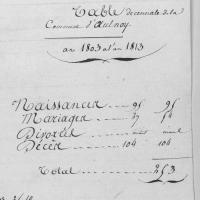 Table décennale de la
Commune d'Aulnoy
an 1803 et an 1813
Naissances 95 95
Mariages 54
Divorces nul
Décès 104 104
Total 253